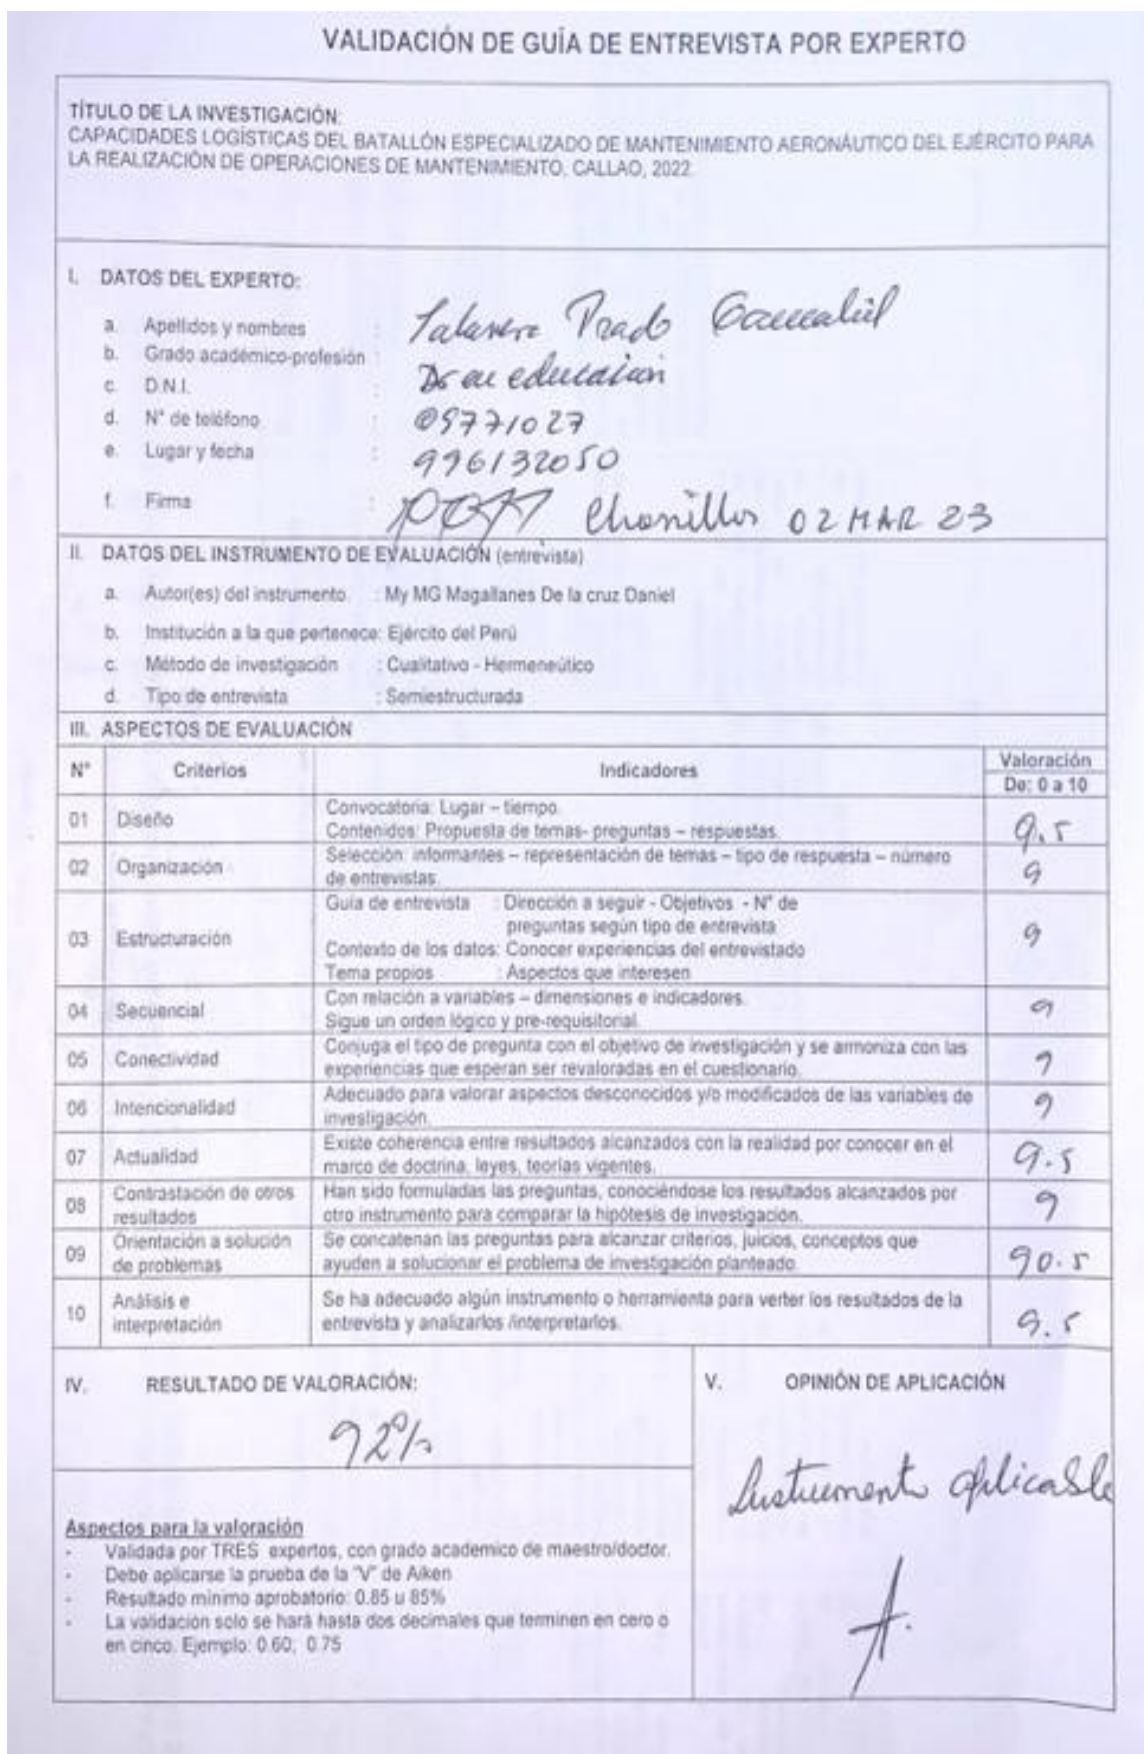 VALIDACIÓN DE GUÍA DE ENTREVISTA POR EXPERTO
TÍTULO DE LA INVESTIGACIÓN:
CAPACIDADES LOGÍSTICAS DEL BATALLÓN ESPECIALIZADO DE MANTENIMIENTO AERONÁUTICO DEL EJÉRCITO PARA
LA REALIZACIÓN DE OPERACIONES DE MANTENIMIENTO, CALLAO, 2022
I. DATOS DEL EXPERTO:
a. Apellidos y nombres : Talavera Prado
b. Grado académico-profesión : Dr en educación
c. D.N.I. : 09771027
d. N° de teléfono : 996132050
e. Lugar y fecha : Chorrillos 02 MAR 23
f. Firma :
II. DATOS DEL INSTRUMENTO DE EVALUACIÓN (entrevista)
a. Autor(es) del instrumento : My MG Magallanes De la cruz Daniel
b. Institución a la que pertenece: Ejército del Perú
c. Método de investigación : Cualitativo - Hermeneútico
d. Tipo de entrevista : Semiestructurada
III. ASPECTOS DE EVALUACIÓN
N° Criterios Indicadores Valoración
De: 0 a 10
01 Diseño Convocatoria: Lugar – tiempo.
Contenidos: Propuesta de temas- preguntas – respuestas. 9.5
02 Organización Selección: informantes – representación de temas – tipo de respuesta – número
de entrevistas. 9
03 Estructuración Guía de entrevista : Dirección a seguir - Objetivos - N° de
preguntas según tipo de entrevista 9
Contexto de los datos: Conocer experiencias del entrevistado
Tema propios : Aspectos que interesen
04 Secuencial Con relación a variables – dimensiones e indicadores.
Sigue un orden lógico y pre-requisitorial. 9
05 Conectividad Conjuga el tipo de pregunta con el objetivo de investigación y se armoniza con las
experiencias que esperan ser revaloradas en el cuestionario. 9
06 Intencionalidad Adecuado para valorar aspectos desconocidos y/o modificados de las variables de
investigación. 9
07 Actualidad Existe coherencia entre resultados alcanzados con la realidad por conocer en el
marco de doctrina, leyes, teorías vigentes. 9.5
08 Contrastación de otros resultados Han sido formuladas las preguntas, conociéndose los resultados alcanzados por
otro instrumento para comparar la hipótesis de investigación. 9
09 Orientación a solución de problemas Se concatenan las preguntas para alcanzar criterios, juicios, conceptos que
ayuden a solucionar el problema de investigación planteado. 90.5
10 Análisis e interpretación Se ha adecuado algún instrumento o herramienta para verter los resultados de la
entrevista y analizarlos /interpretarlos. 9.5
IV. RESULTADO DE VALORACIÓN:
92%
V. OPINIÓN DE APLICACIÓN
Instrumento aplicable
Aspectos para la valoración
- Validada por TRES expertos, con grado academico de maestro/doctor.
- Debe aplicarse la prueba de la "V" de Aiken
- Resultado mínimo aprobatorio: 0.85 u 85%
- La validación solo se hará hasta dos decimales que terminen en cero o
en cinco. Ejemplo: 0.60; 0.75